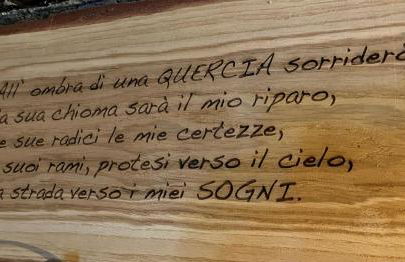 All' ombra di una QUERCIA sorriderò
a sua chioma sarà il mio riparo,
e sue radici le mie certezze,
suoi rami, protesi verso il cielo,
a strada verso i miei SOGNI.